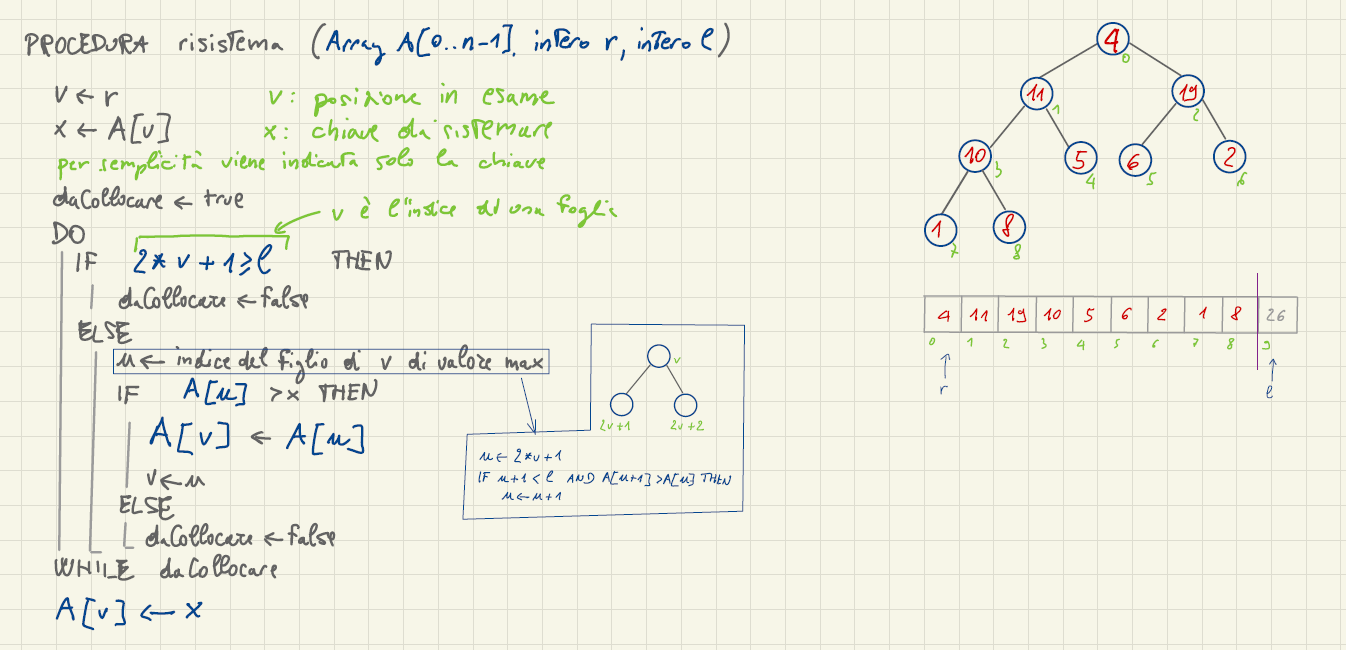 PROCEDURA risistema (Array A[0..n-1], intero r, intero l)
v ← r
v: posizione in esame
x ← A[v]
x: chiave da sistemare
per semplicità viene indicata solo la chiave
daCollocare ← true
v è l'indice di una foglia
DO
IF 2*v+1≥l THEN
daCollocare ← false
ELSE
u ← indice del figlio di v di valore max
IF A[u] >x THEN
A[v] ← A[u]
v←u
ELSE
daCollocare ← false
WHILE daCollocare
A[v] ← x
v
2v+1 2v+2
u ← 2*v+1
IF u+1 < l AND A[u+1] >A[u] THEN
u ← u+1
4
0
11 19
1 2
10 5 6 2
3 4 5 6
1 8
7 8
4 11 19 10 5 6 2 1 8 26
0 1 2 3 4 5 6 7 8 9
↑ ↑
r l